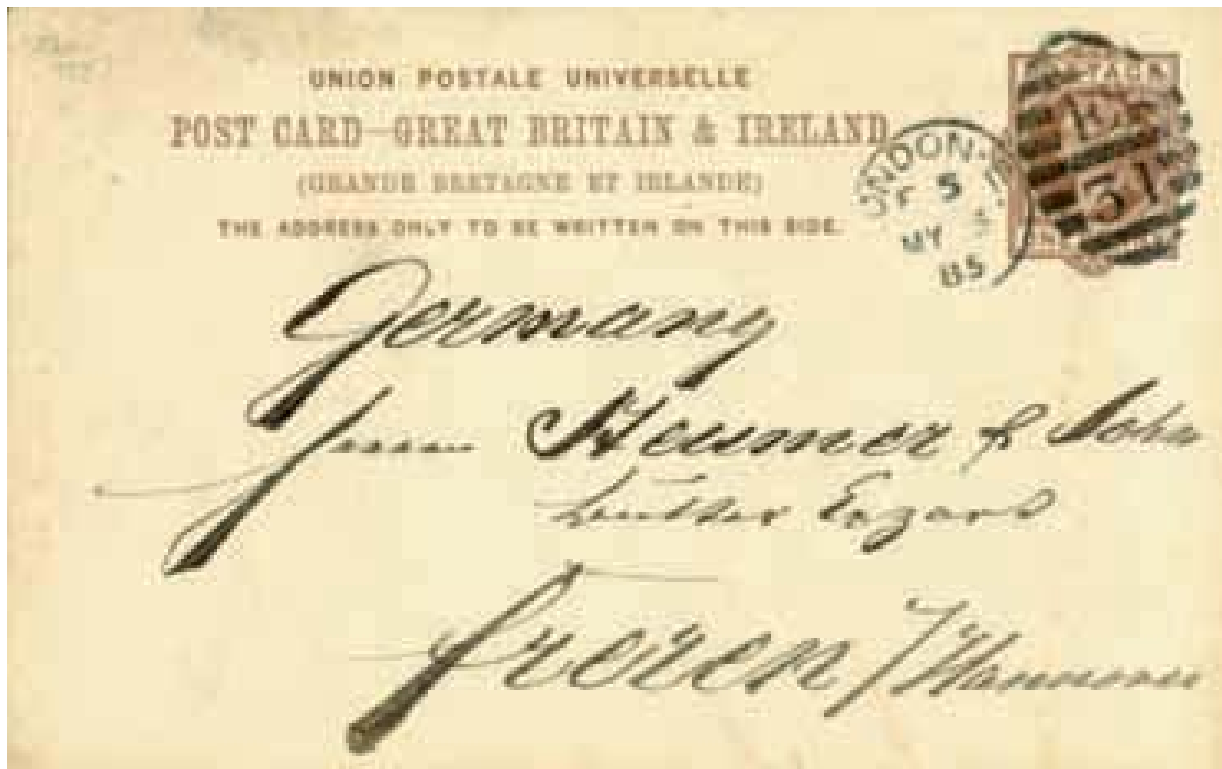 UNION POSTALE UNIVERSELLE
POST CARD-GREAT BRITAIN & IRELAND
(GRANDE BRETAGNE ET IRLANDE)
THE ADDRESS ONLY TO BE WRITTEN ON THIS SIDE.
LONDON
5
MY
85
POSTAGE
31
Germany
& Sohn
Butter
Freren / Hannover